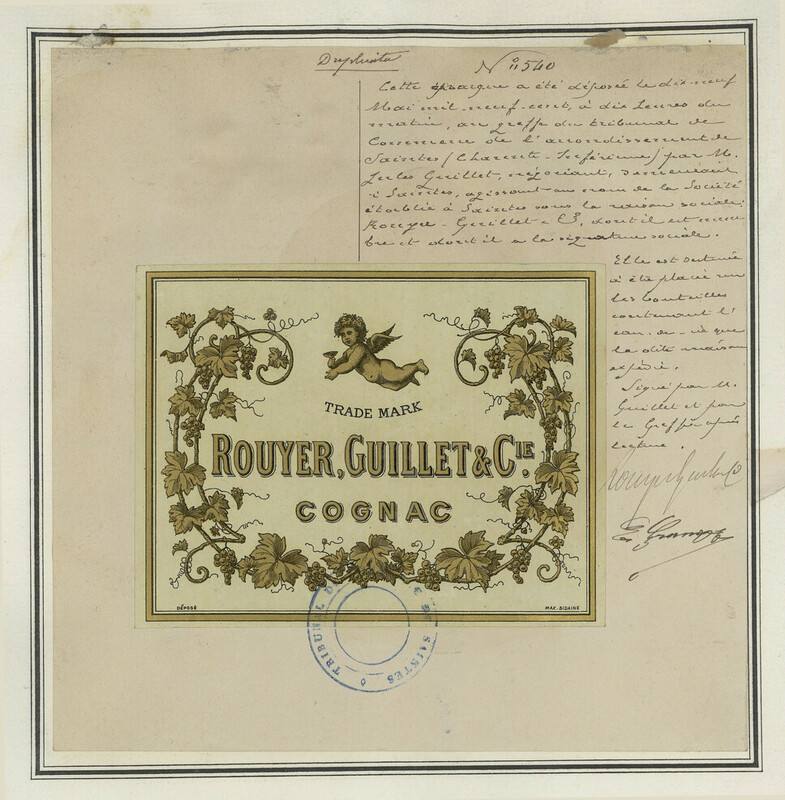 Duplicata
N° 540
Cette marque a été déposée le dix-neuf
Mai mil neuf-cent, à dix heures du
matin, au greffe du tribunal de
Commerce de l'arrondissement de
Saintes (Charente-Inférieure) par M.
Jules Guillet, négociant, demeurant
à Saintes, agissant au nom de la Société
établie à Saintes sous la raison sociale:
Rouyer-Guillet & Cie, dont il est mem
bre et dont il a la signature sociale.
Elle est destinée
à être placée sur
les bouteilles
contenant l'
eau-de-vie que
la dite maison
expédie.
Signé par M.
Guillet et par
le Greffier après
lecture.
Rouyer Guillet & Co
TRADE MARK
ROUYER, GUILLET & CIE.
COGNAC
DÉPOSÉ
TRIBUNAL DE SAINTES